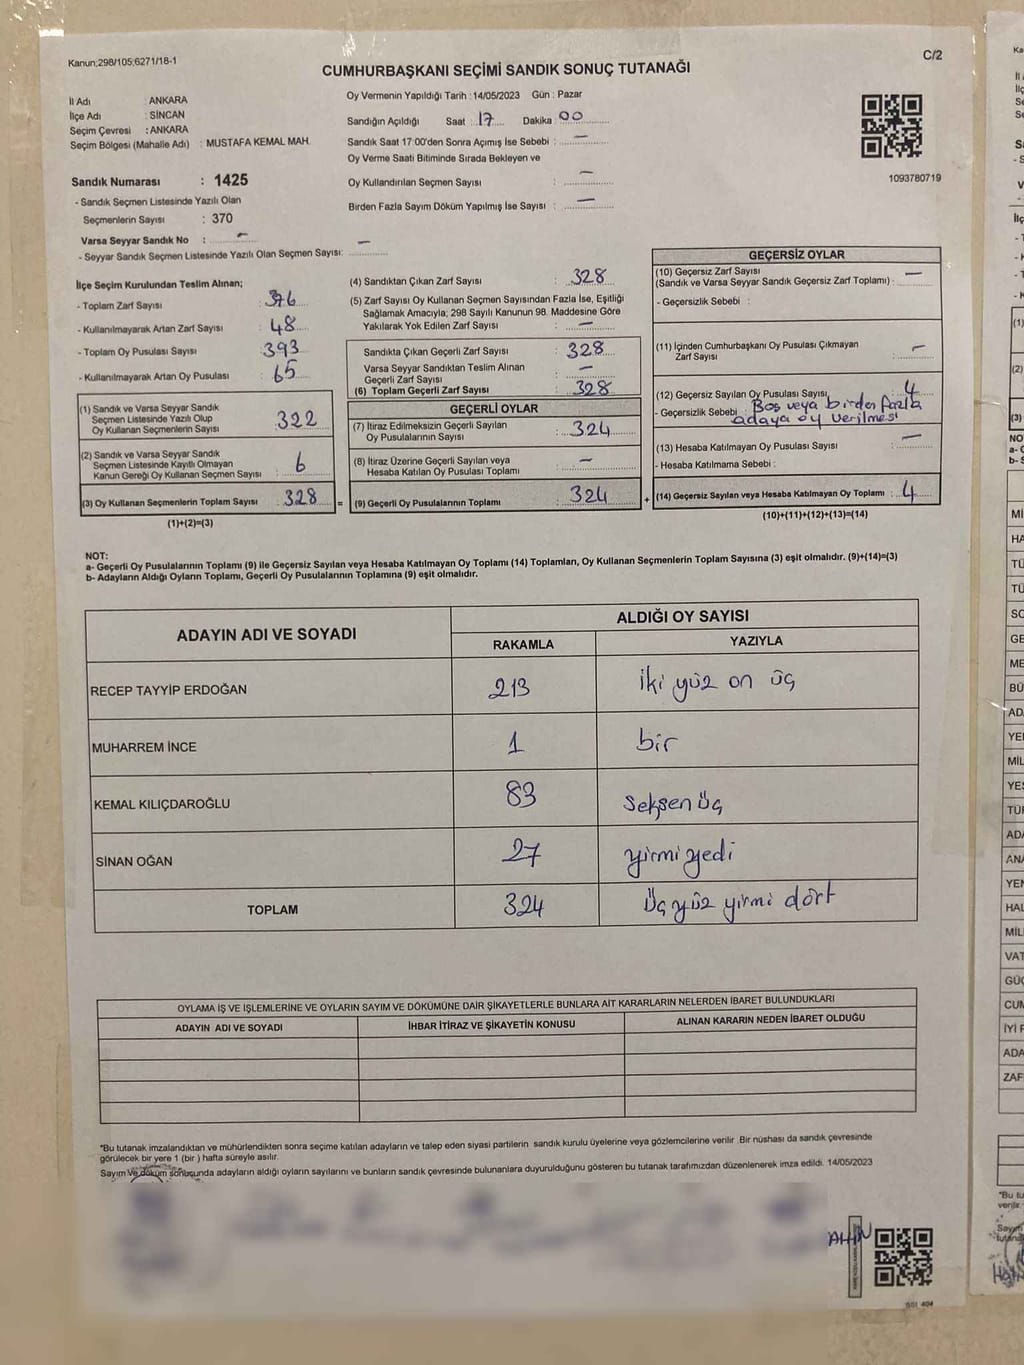 Kanun;298/105;6271/18-1
C/2
CUMHURBAŞKANI SEÇİMİ SANDIK SONUÇ TUTANAĞI
İl Adı : ANKARA
İlçe Adı : SİNCAN
Seçim Çevresi : ANKARA
Seçim Bölgesi (Mahalle Adı) : MUSTAFA KEMAL MAH.
Sandık Numarası : 1425
- Sandık Seçmen Listesinde Yazılı Olan
Seçmenlerin Sayısı : 370
Varsa Seyyar Sandık No : -
- Seyyar Sandık Seçmen Listesinde Yazılı Olan Seçmen Sayısı: -
Oy Vermenin Yapıldığı Tarih : 14/05/2023 Gün : Pazar
Sandığın Açıldığı Saat : 17 Dakika : 00
Sandık Saat 17:00'den Sonra Açımış İse Sebebi : -
Oy Verme Saati Bitiminde Sırada Bekleyen ve
Oy Kullandırılan Seçmen Sayısı : -
Birden Fazla Sayım Döküm Yapılmış İse Sayısı : -
1093780719
İlçe Seçim Kurulundan Teslim Alınan;
- Toplam Zarf Sayısı : 376
- Kullanılmayarak Artan Zarf Sayısı : 48
- Toplam Oy Pusulası Sayısı : 393
- Kullanılmayarak Artan Oy Pusulası : 65
(1) Sandık ve Varsa Seyyar Sandık
Seçmen Listesinde Yazılı Olup
Oy Kullanan Seçmenlerin Sayısı : 322
(2) Sandık ve Varsa Seyyar Sandık
Seçmen Listesinde Kayıtlı Olmayan
Kanun Gereği Oy Kullanan Seçmen Sayısı : 6
(3) Oy Kullanan Seçmenlerin Toplam Sayısı : 328 =
(1)+(2)=(3)
(4) Sandıktan Çıkan Zarf Sayısı : 328
(5) Zarf Sayısı Oy Kullanan Seçmen Sayısından Fazla İse, Eşitliği
Sağlamak Amacıyla; 298 Sayılı Kanunun 98. Maddesine Göre
Yakılarak Yok Edilen Zarf Sayısı : -
Sandıkta Çıkan Geçerli Zarf Sayısı : 328
Varsa Seyyar Sandıktan Teslim Alınan
Geçerli Zarf Sayısı : -
(6) Toplam Geçerli Zarf Sayısı : 328
GEÇERLİ OYLAR
(7) İtiraz Edilmeksizin Geçerli Sayılan
Oy Pusulalarının Sayısı : 324
(8) İtiraz Üzerine Geçerli Sayılan veya
Hesaba Katılan Oy Pusulası Toplamı : -
(9) Geçerli Oy Pusulalarının Toplamı : 324 +
GEÇERSİZ OYLAR
(10) Geçersiz Zarf Sayısı
(Sandık ve Varsa Seyyar Sandık Geçersiz Zarf Toplamı) : -
- Geçersizlik Sebebi :
(11) İçinden Cumhurbaşkanı Oy Pusulası Çıkmayan
Zarf Sayısı : -
(12) Geçersiz Sayılan Oy Pusulası Sayısı : 4
- Geçersizlik Sebebi : Boş veya birden fazla
adaya oy verilmesi
(13) Hesaba Katılmayan Oy Pusulası Sayısı : -
- Hesaba Katılmama Sebebi :
(14) Geçersiz Sayılan veya Hesaba Katılmayan Oy Toplamı : 4
(10)+(11)+(12)+(13)=(14)
NOT:
a- Geçerli Oy Pusulalarının Toplamı (9) ile Geçersiz Sayılan veya Hesaba Katılmayan Oy Toplamı (14) Toplamları, Oy Kullanan Seçmenlerin Toplam Sayısına (3) eşit olmalıdır. (9)+(14)=(3)
b- Adayların Aldığı Oyların Toplamı, Geçerli Oy Pusulalarının Toplamına (9) eşit olmalıdır.
ADAYIN ADI VE SOYADI
ALDIĞI OY SAYISI
RAKAMLA YAZIYLA
RECEP TAYYİP ERDOĞAN 213 iki yüz on üç
MUHARREM İNCE 1 bir
KEMAL KILIÇDAROĞLU 83 Seksen üç
SİNAN OĞAN 27 yirmi yedi
TOPLAM 324 üç yüz yirmi dört
OYLAMA İŞ VE İŞLEMLERİNE VE OYLARIN SAYIM VE DÖKÜMÜNE DAİR ŞİKAYETLERLE BUNLARA AİT KARARLARIN NELERDEN İBARET BULUNDUKLARI
ADAYIN ADI VE SOYADI İHBAR İTİRAZ VE ŞİKAYETİN KONUSU ALINAN KARARIN NEDEN İBARET OLDUĞU
*Bu tutanak imzalandıktan ve mühürlendikten sonra seçime katılan adayların ve talep eden siyasi partilerin sandık kurulu üyelerine veya gözlemcilerine verilir. Bir nüshası da sandık çevresinde
görülecek bir yere 1 (bir) hafta süreyle asılır.
Sayım ve döküm sonucunda adayların aldığı oyların sayılarını ve bunların sandık çevresinde bulunanlara duyurulduğunu gösteren bu tutanak tarafımızdan düzenlenerek imza edildi. 14/05/2023